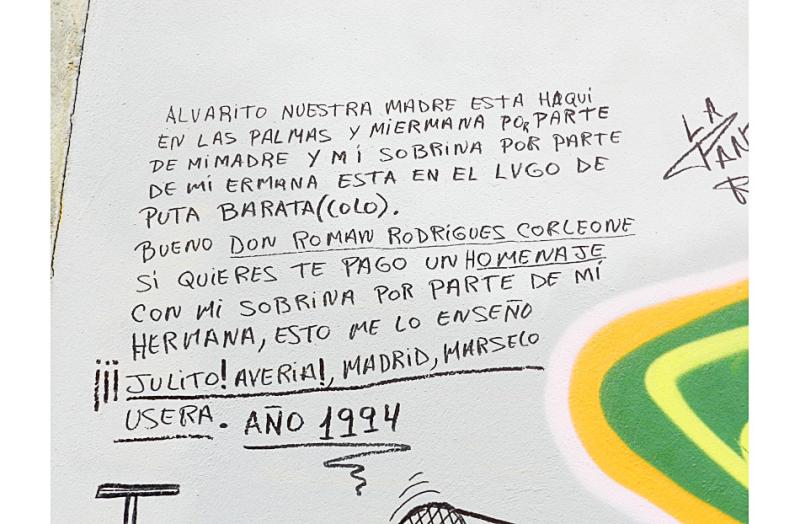 ALVARITO NUESTRA MADRE ESTA HAQUÍ
EN LAS PALMAS Y MIERMANA POR PARTE
DE MIMADRE Y MÍ SOBRINA POR PARTE
DE MÍ ERMANA ESTA EN EL LUGO DE
PUTA BARATA(COLO).
BUENO DON ROMAN RODRÍGUES CORLEONE
SÍ QUIERES TE PAGO UN HOMENAJE
CON MI SOBRINA POR PARTE DE MÍ
HERMANA, ESTO ME LO ENSEÑO
¡¡¡JULITO! AVERIA!, MADRID, MARSELO
USERA. AÑO 1994
LA